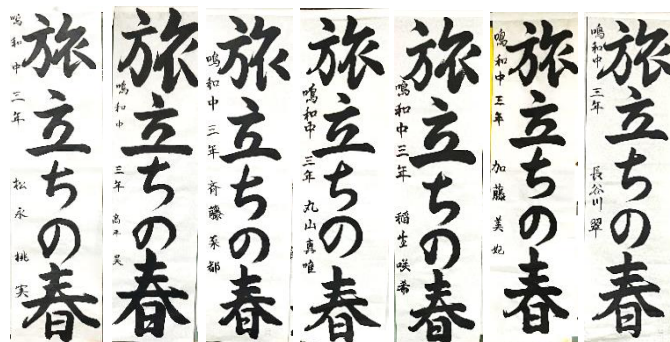 旅立ちの春
鳴和中 三年 松永 桃実
旅立ちの春
鳴和中 三年
旅立ちの春
鳴和中 三年 斉藤 菜都
旅立ちの春
鳴和中 三年 丸山真唯
旅立ちの春
鳴和中 三年 稲生咲希
旅立ちの春
鳴和中 三年 加藤 美妃
旅立ちの春
鳴和中 三年 長谷川 翠